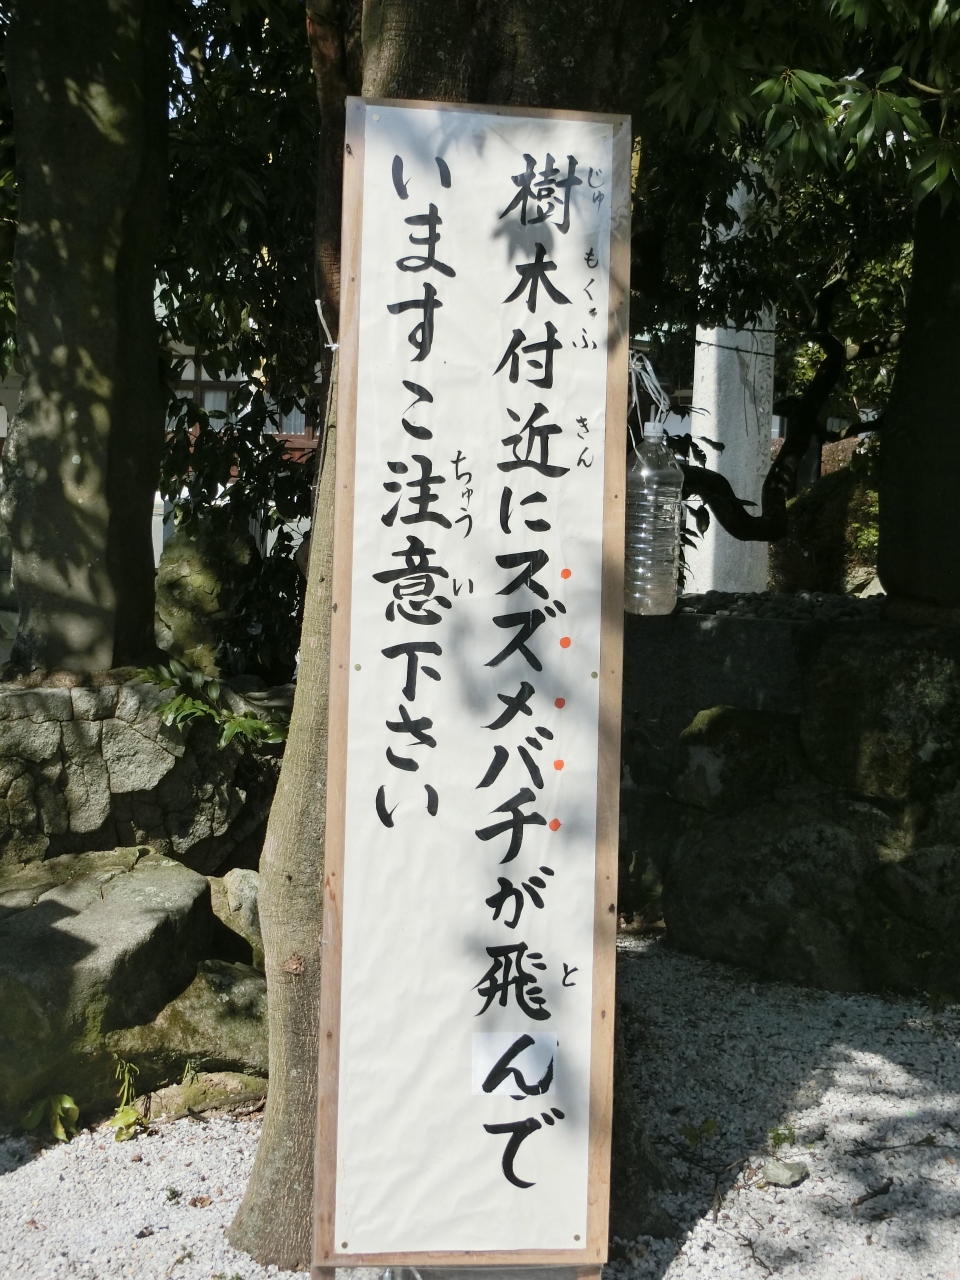 樹木付近にスズメバチが飛んで
いますこ注意下さい
じゅもく
ふきん
と
ちゅうい